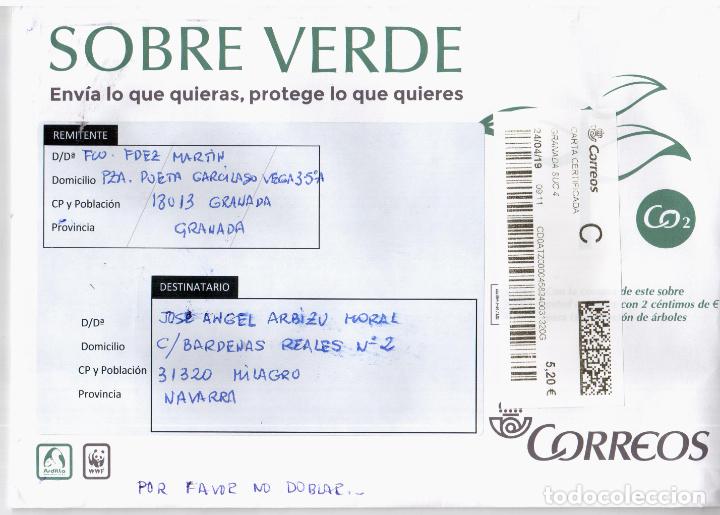 SOBRE VERDE
Envía lo que quieras, protege lo que quieres
REMITENTE
D/Dª FCO. FDEZ MARTIN
Domicilio PZA. POETA GARCILASO VEGA 3 5ºA
CP y Población 18013 GRANADA
Provincia GRANADA
DESTINATARIO
D/Dª JOSE ANGEL ARBIZU MORAL
Domicilio C/ BARDENAS REALES Nº 2
CP y Población 31320 MILAGRO
Provincia NAVARRA
Correos
C
CARTA CERTIFICADA
GRANADA SUC 4
24/04/19 09:11
5,20 €
CO2
de este sobre
con 2 céntimos de €
ón de árboles
Ardilla
WWF
CORREOS
POR FAVOR NO DOBLAR..
todocoleccion